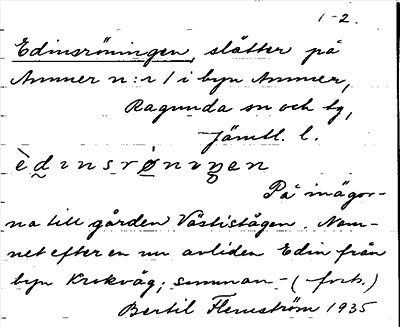 1-2.
Edinsröningen, slåtter på
Ammer n:r 1 i byn Ammer,
Ragunda sn och tg,
Jämtl. l.
èdinsrøniŋen
På inägor-
na till gården Västistågen. Nam-
net efter en nu avliden Edin från
byn Krokvåg; samman- (forts.)
Bertil Flemström 1935